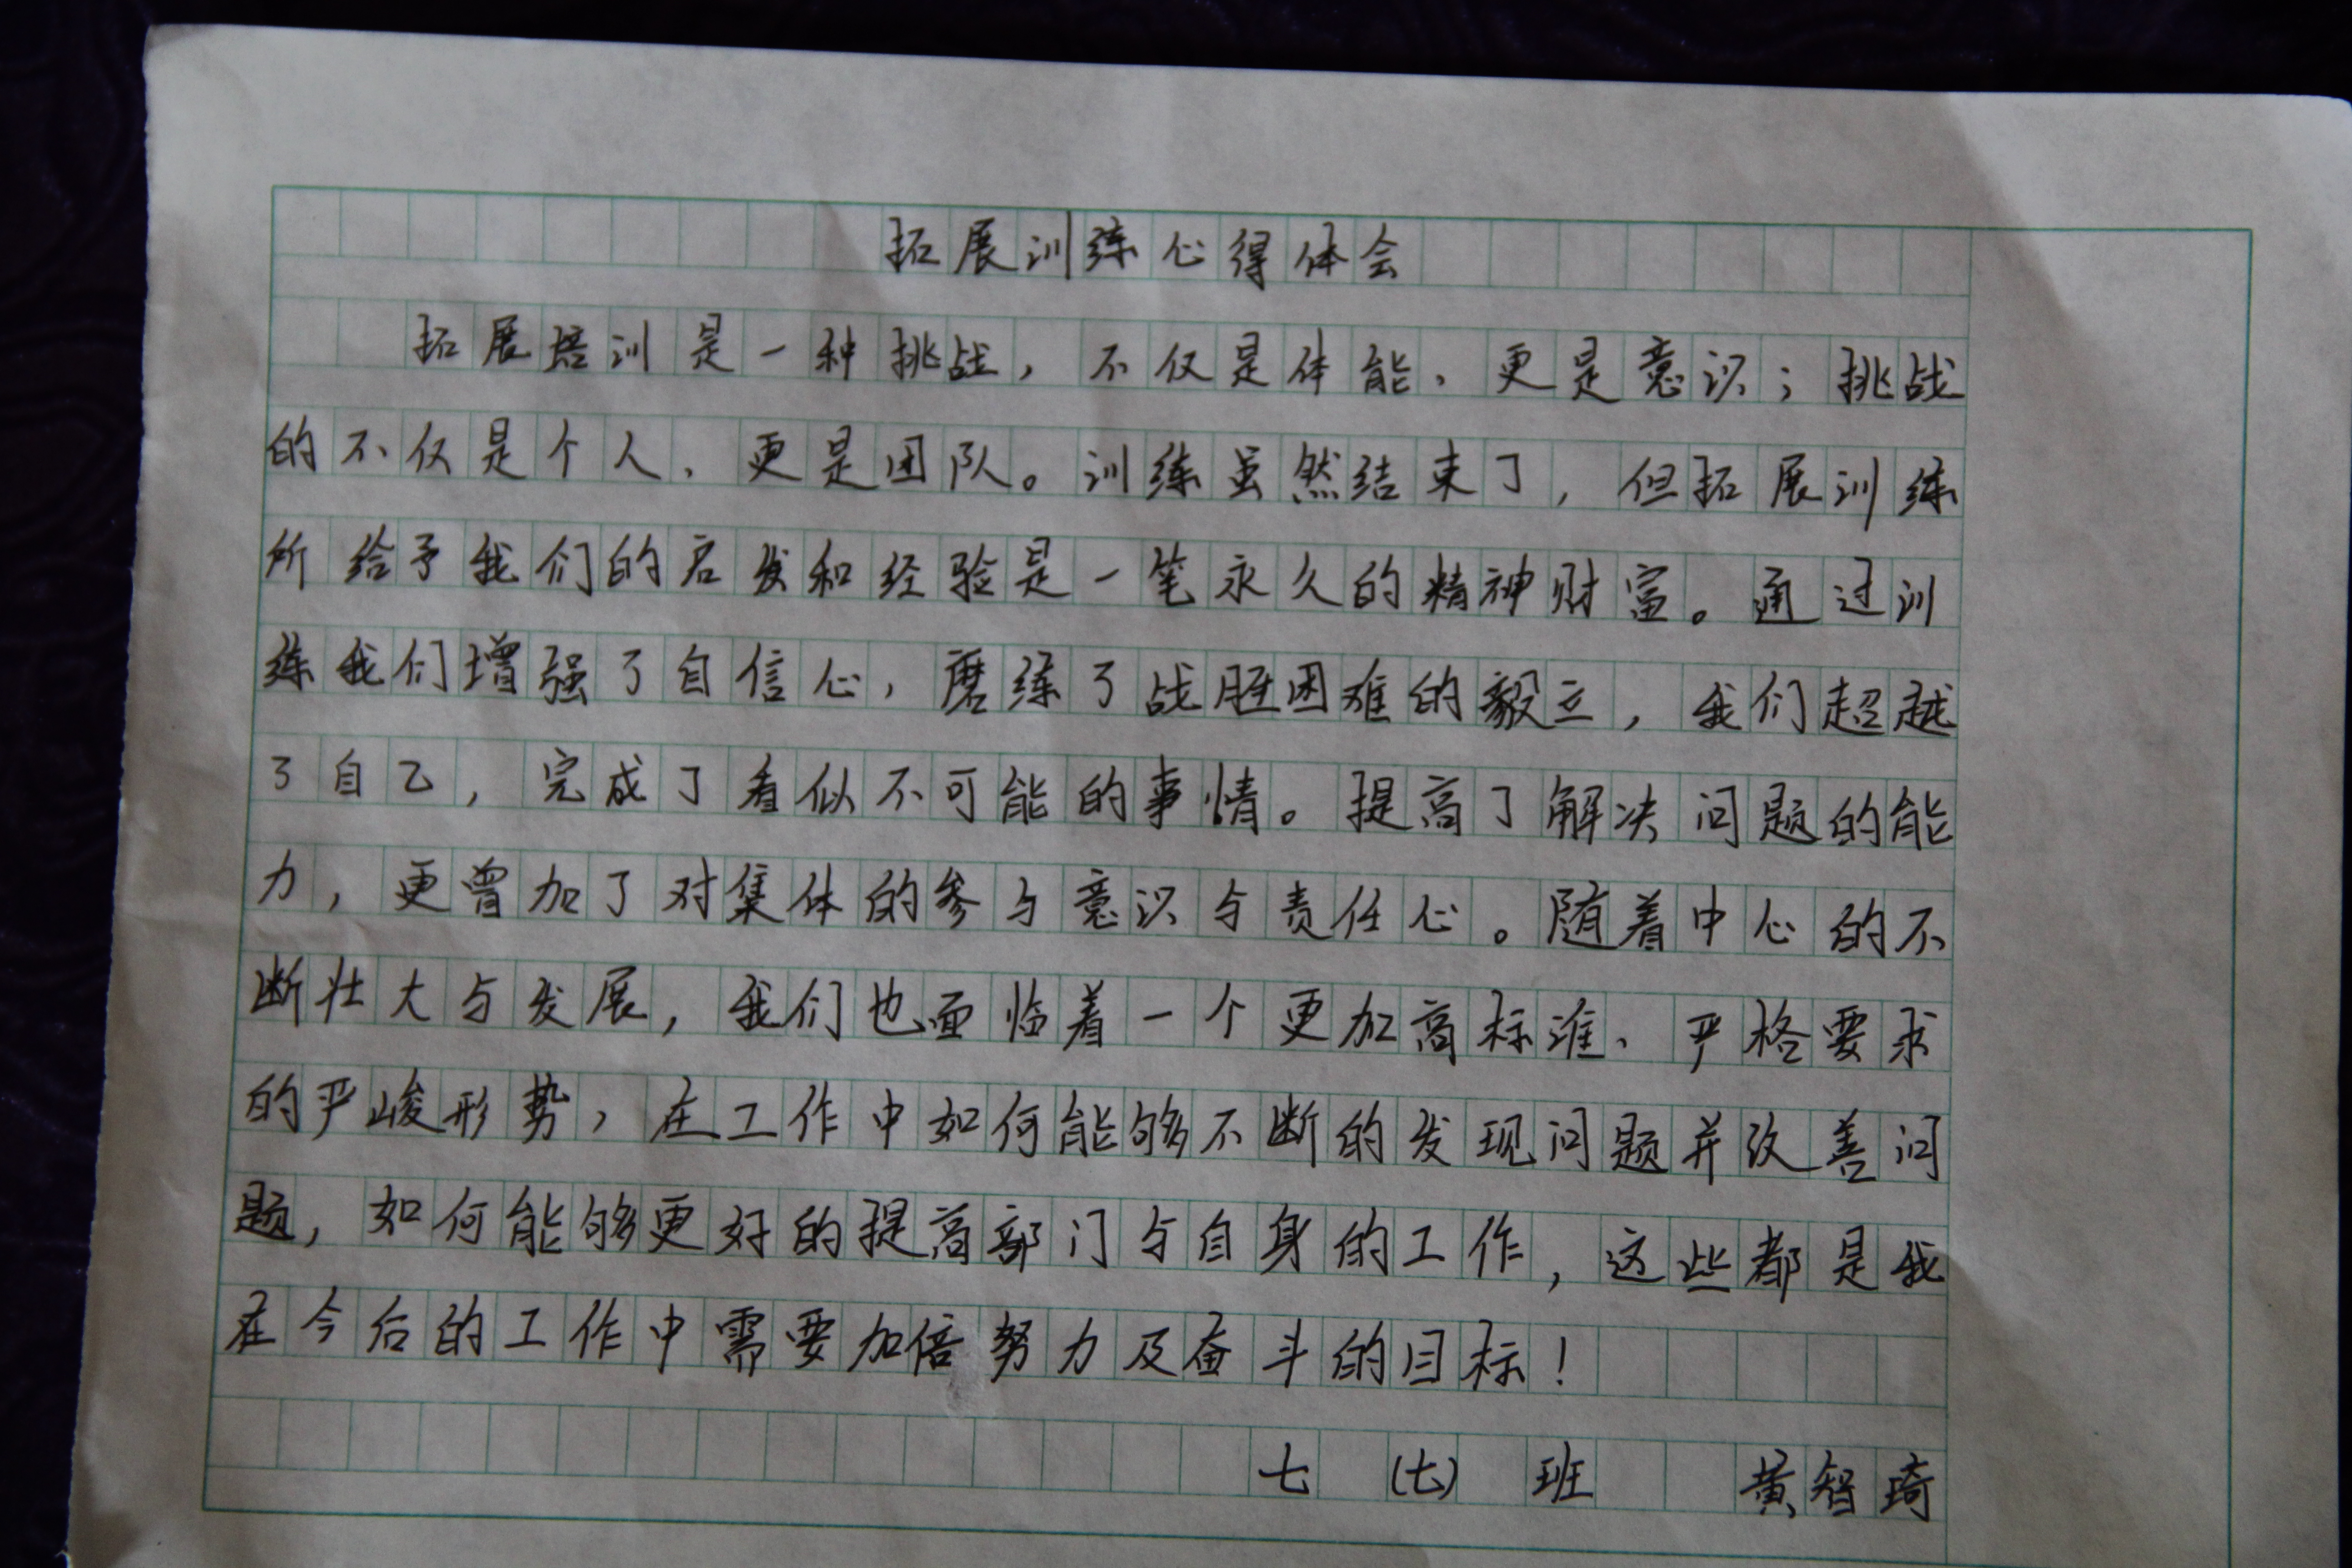 拓展训练心得体会
拓展培训是一种挑战，不仅是体能、更是意识；挑战
的不仅是个人、更是团队。训练虽然结束了，但拓展训练
所给予我们的启发和经验是一笔永久的精神财富。通过训
练我们增强了自信心，磨练了战胜困难的毅立，我们超越
了自己，完成了看似不可能的事情。提高了解决问题的能
力，更曾加了对集体的参与意识与责任心。随着中心的不
断壮大与发展，我们也面临着一个更加高标准、严格要求
的严峻形势，在工作中如何能够不断的发现问题并改善问
题，如何能够更好的提高部门与自身的工作，这些都是我
在今后的工作中需要加倍努力及奋斗的目标！
七（七）班 黄智琦